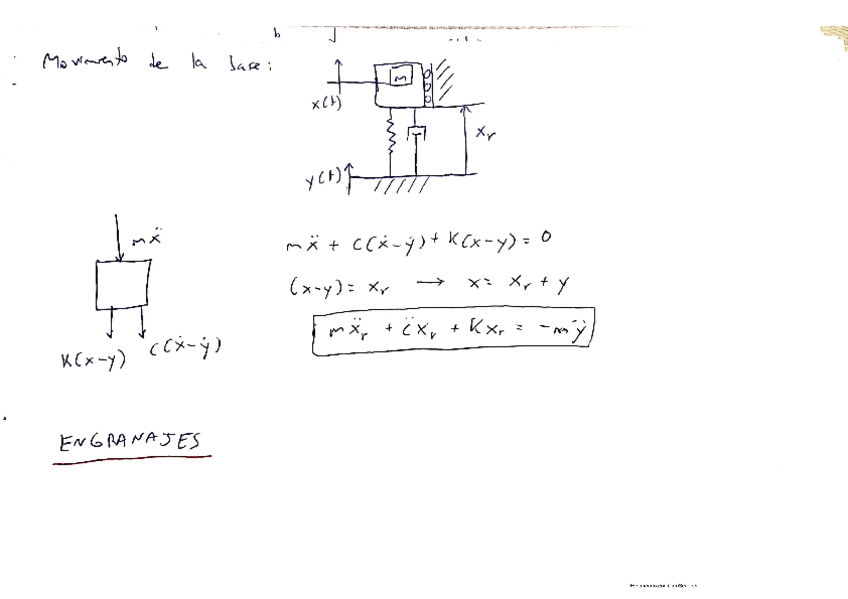 b
Movimiento de la base:
m
x(t)
xᵣ
y(t)
mẍ
K(x-y)
C(ẋ-ẏ)
mẍ + C(ẋ-ẏ) + K(x-y) = 0
(x-y) = xᵣ → x = xᵣ + y
mẍᵣ + C̈xᵣ + Kxᵣ = -mÿ
ENGRANAJES